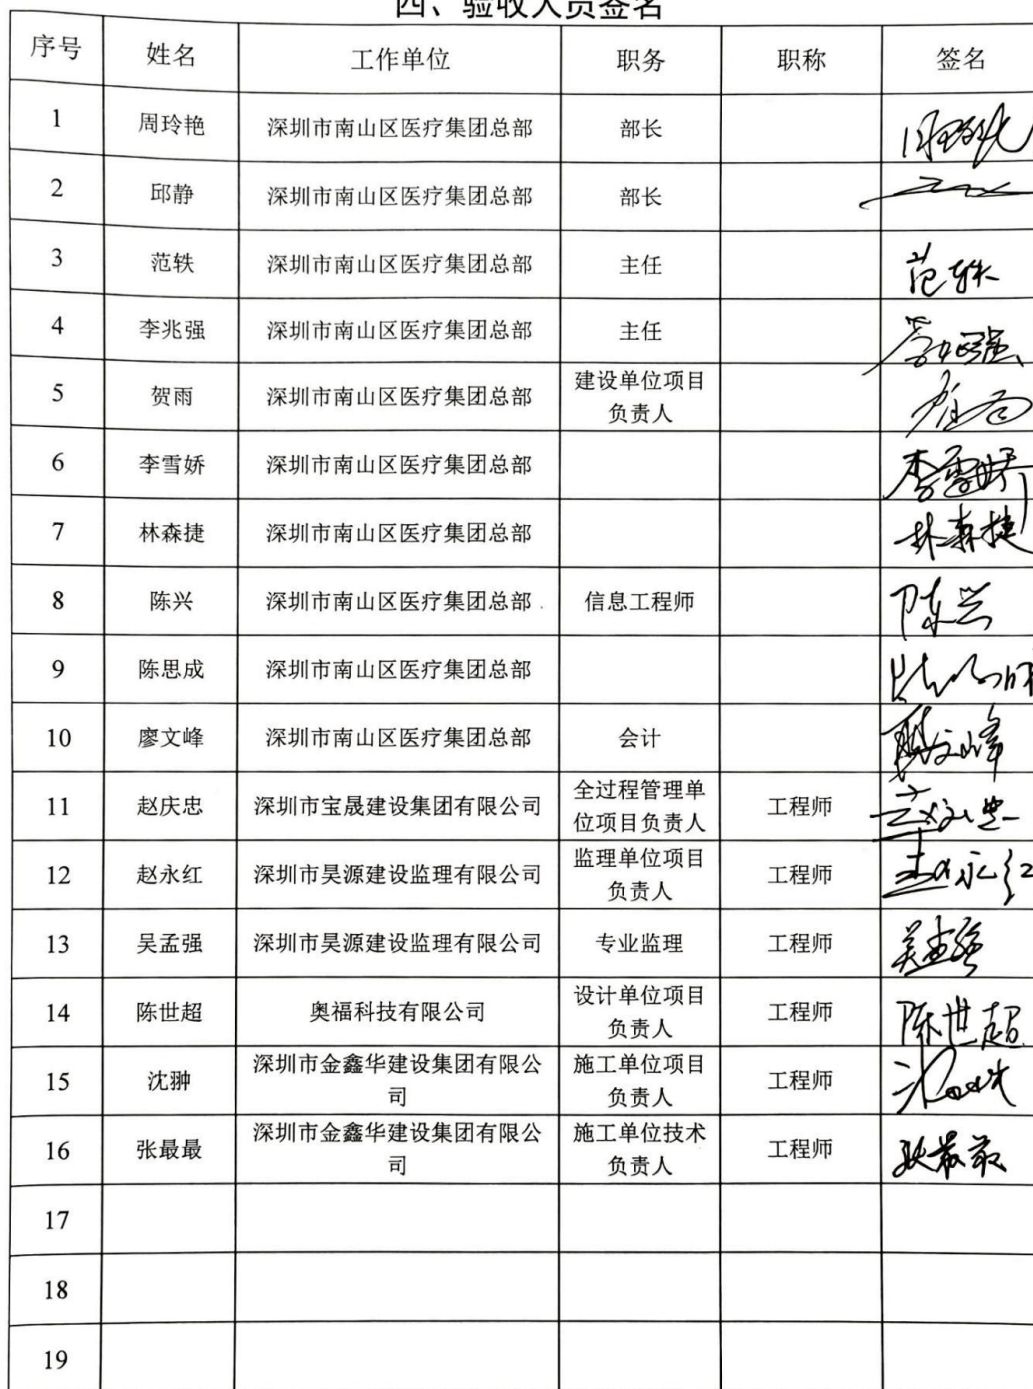 四、验收人员签名
序号 姓名 工作单位 职务 职称 签名
1 周玲艳 深圳市南山区医疗集团总部 部长
2 邱静 深圳市南山区医疗集团总部 部长
3 范轶 深圳市南山区医疗集团总部 主任 范轶
4 李兆强 深圳市南山区医疗集团总部 主任
5 贺雨 深圳市南山区医疗集团总部 建设单位项目
负责人
6 李雪娇 深圳市南山区医疗集团总部 李雪娇
7 林森捷 深圳市南山区医疗集团总部 林森捷
8 陈兴 深圳市南山区医疗集团总部 信息工程师 陈兴
9 陈思成 深圳市南山区医疗集团总部
10 廖文峰 深圳市南山区医疗集团总部 会计
11 赵庆忠 深圳市宝晟建设集团有限公司 全过程管理单
位项目负责人 工程师
12 赵永红 深圳市昊源建设监理有限公司 监理单位项目
负责人 工程师 赵永红
13 吴孟强 深圳市昊源建设监理有限公司 专业监理 工程师 吴孟强
14 陈世超 奥福科技有限公司 设计单位项目
负责人 工程师 陈世超
15 沈翀 深圳市金鑫华建设集团有限公
司 施工单位项目
负责人 工程师
16 张最最 深圳市金鑫华建设集团有限公
司 施工单位技术
负责人 工程师 张最最
17
18
19